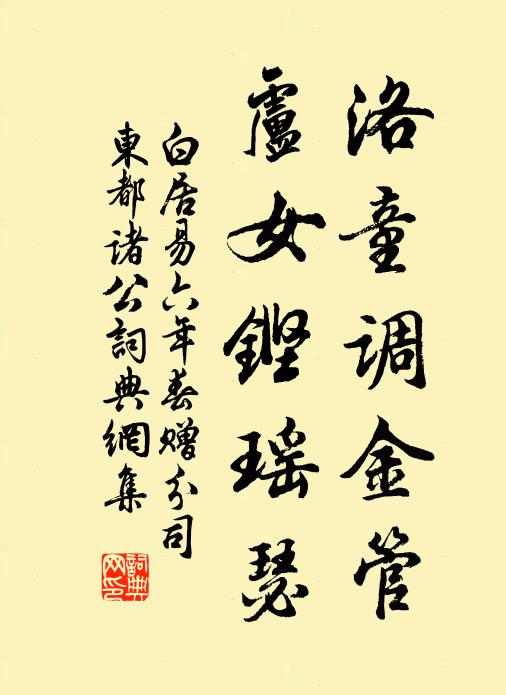 洛童调金管
盧女鏗瑶瑟
白居易六年春赠分司
東都诸公詞典網集
詞典网印